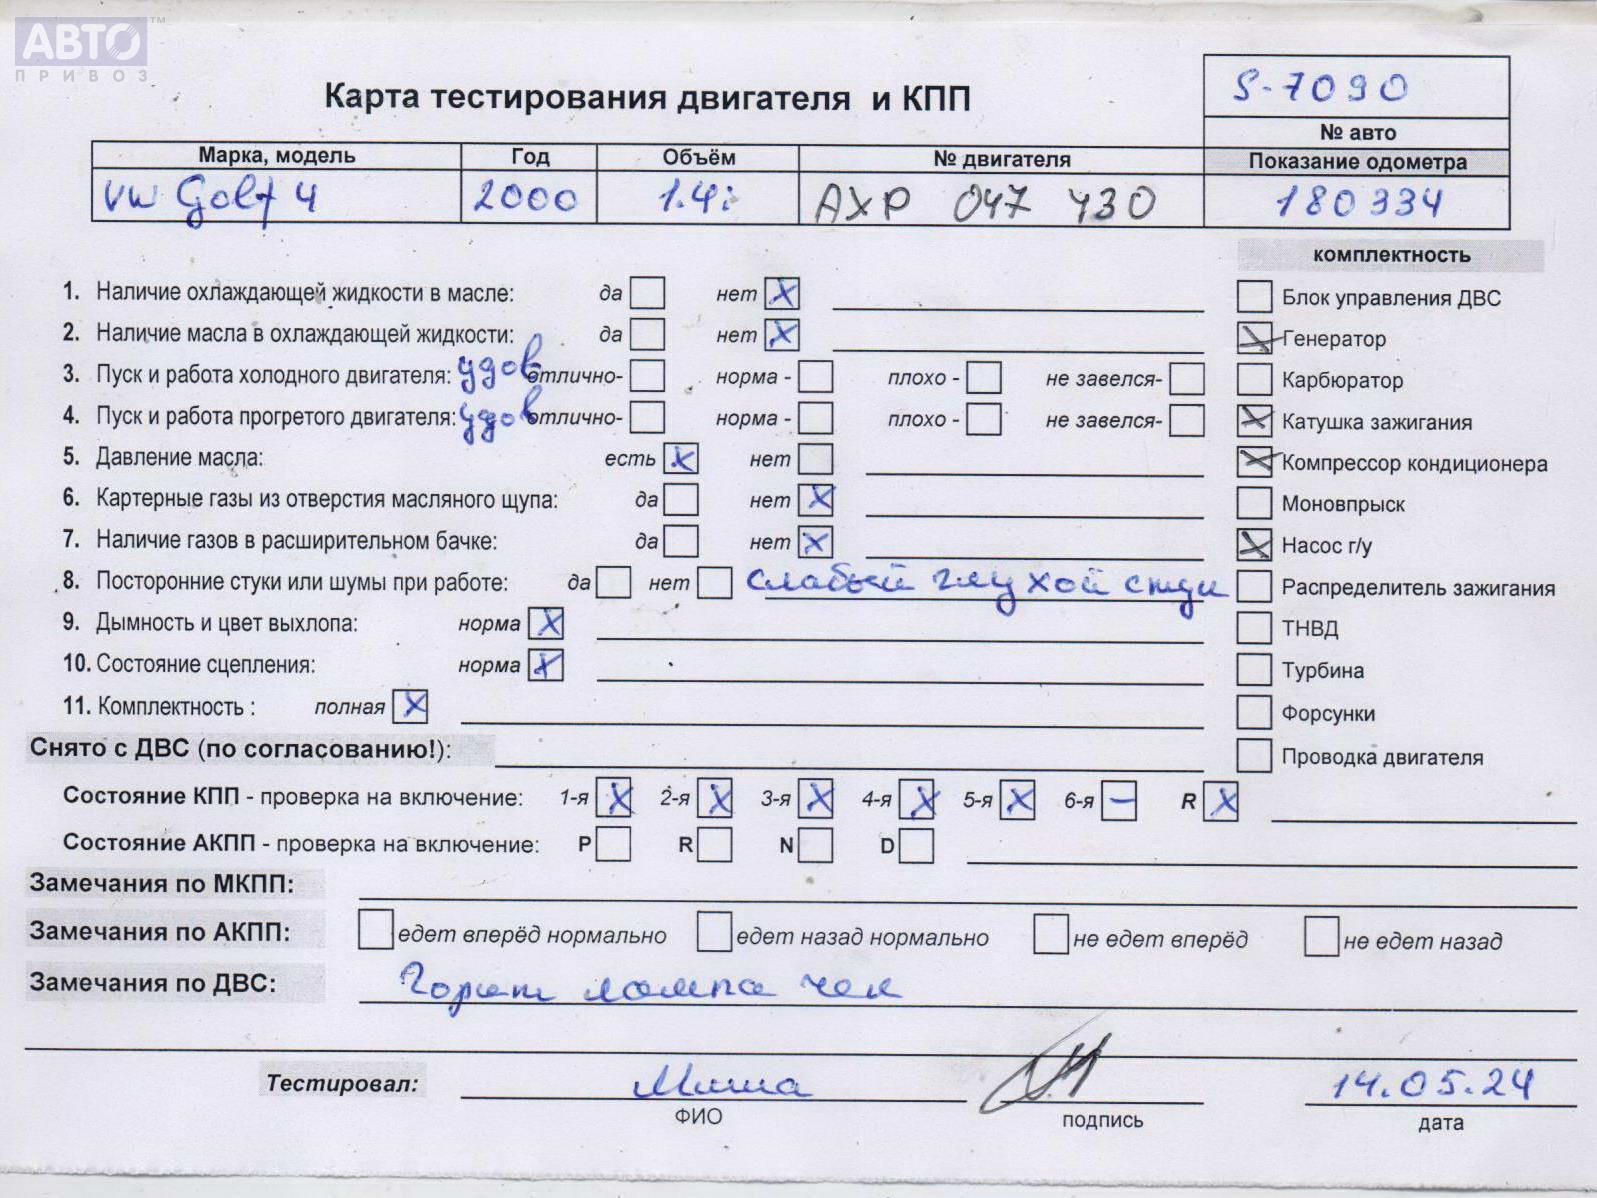 АВТО™
ПРИВОЗ
S-7090
Карта тестирования двигателя и КПП
№ авто
Марка, модель Год Объём № двигателя Показание одометра
VW Golf 4 2000 1.4i AXP 047 430 180334
комплектность
1. Наличие охлаждающей жидкости в масле: да нет X Блок управления ДВС
2. Наличие масла в охлаждающей жидкости: да нет X X Генератор
3. Пуск и работа холодного двигателя: удов отлично- норма - плохо - не завелся- Карбюратор
4. Пуск и работа прогретого двигателя: удов отлично- норма - плохо - не завелся- X Катушка зажигания
5. Давление масла: есть X нет X Компрессор кондиционера
6. Картерные газы из отверстия масляного щупа: да нет X Моновпрыск
7. Наличие газов в расширительном бачке: да нет X X Насос г/у
8. Посторонние стуки или шумы при работе: да нет слабый глухой стук Распределитель зажигания
9. Дымность и цвет выхлопа: норма X ТНВД
10. Состояние сцепления: норма X Турбина
11. Комплектность : полная X Форсунки
Снято с ДВС (по согласованию!): Проводка двигателя
Состояние КПП - проверка на включение: 1-я X 2-я X 3-я X 4-я X 5-я X 6-я – R X
Состояние АКПП - проверка на включение: P R N D
Замечания по МКПП:
Замечания по АКПП: едет вперёд нормально едет назад нормально не едет вперёд не едет назад
Замечания по ДВС: Горит лампа чек
Тестировал: Миша 14.05.24
ФИО подпись дата